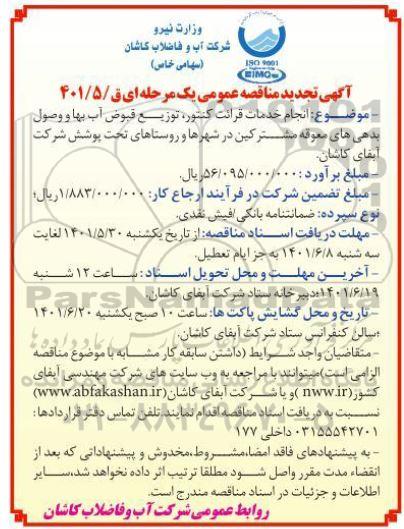 وزارت نیرو
شرکت آب و فاضلاب کاشان
(سهامی خاص)
ISO 9001
IMQ
آگهی تجدید مناقصه عمومی یک مرحله ای ق/۴۰۱/۵
- موضوع: انجام خدمات قرائت کنتور، توزیع قبوض آب بها و وصول
بدهی های معوقه مشترکین در شهرها و روستاهای تحت پوشش شرکت
آبفای کاشان.
- مبلغ برآورد: ۵۶/۰۹۵/۰۰۰/۰۰۰ریال.
- مبلغ تضمین شرکت در فرآیند ارجاع کار: ۱/۸۸۳/۰۰۰/۰۰۰ریال؛
نوع سپرده: ضمانتنامه بانکی/فیش نقدی.
- مهلت دریافت اسناد مناقصه: از تاریخ یکشنبه ۱۴۰۱/۵/۳۰ لغایت
سه شنبه ۱۴۰۱/۶/۸ به جز ایام تعطیل.
- آخرین مهلت و محل تحویل اسناد: ساعت ۱۲ شنبه
۱۴۰۱/۶/۱۹؛دبیرخانه ستاد شرکت آبفای کاشان.
- تاریخ و محل گشایش پاکت ها: ساعت ۱۰ صبح یکشنبه ۱۴۰۱/۶/۲۰
؛سالن کنفرانس ستاد شرکت آبفای کاشان.
- متقاضیان واجد شرایط (داشتن سابقه کار مشابه با موضوع مناقصه
الزامی است)میتوانند با مراجعه به وب سایت های شرکت مهندسی آبفای
کشور(nww.ir) و یا شرکت آبفای کاشان(www.abfakashan.ir)
نسبت به دریافت اسناد مناقصه اقدام نمایند.تلفن تماس دفتر قراردادها:
۰۳۱۵۵۵۴۲۷۰۱ داخلی ۱۷۷
- به پیشنهادهای فاقد امضا،مشروط،مخدوش و پیشنهاداتی که بعد از
انقضاء مدت مقرر واصل شود مطلقا ترتیب اثر داده نخواهد شد،سایر
اطلاعات و جزئیات در اسناد مناقصه مندرج است.
روابط عمومی شرکت آب و فاضلاب کاشان